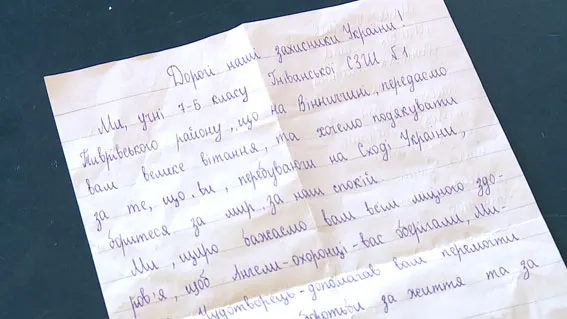 Дорогі наші захисники України!
Ми, учні 7-Б класу Гніванської СЗШ №1
Тиврівського району, що на Вінниччині, передаємо
вам велике вітання, та хочемо подякувати
за те, що ви, перебуваючи на Сході України,
боритеся за мир, за наш спокій.
Ми, щиро бажаємо вам всім міцного здо-
ров'я, щоб Ангели-охоронці-вас берігали, Ми-
Чудотворець-допомагав вам перемогти
боротьби за життя та за